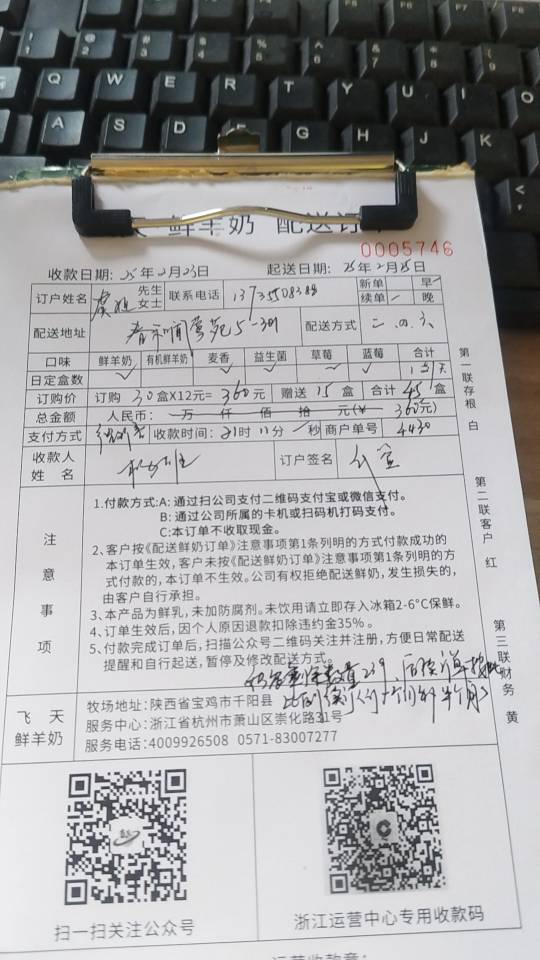 鲜羊奶 配送订
0005746
收款日期: 25年2月23日 起送日期: 25年2月25日
订户姓名 先生 女士 联系电话 新单 续单 早 晚
配送地址 5-301 配送方式 二.四.六
口味 鲜羊奶 有机鲜羊奶 麦香 益生菌 草莓 蓝莓 合计
日定盒数
订购价 订购 30盒X12元= 360元 赠送 15盒 合计 45盒
总金额 人民币: 万 仟 佰 拾 元(¥ 360元)
支付方式 收款时间: 21时11分 秒 商户单号 4430
收款人 姓 名 订户签名
注意事项
1.付款方式:A: 通过扫公司支付二维码支付宝或微信支付。
B: 通过公司所属的卡机或扫码机打码支付。
C:本订单不收取现金。
2、客户按《配送鲜奶订单》注意事项第1条列明的方式付款成功的
本订单生效，客户未按《配送鲜奶订单》注意事项第1条列明的方
式付款的，本订单不生效。公司有权拒绝配送鲜奶，发生损失的，
由客户自行承担。
3、本产品为鲜乳，未加防腐剂。未饮用请立即存入冰箱2-6℃保鲜。
4、订单生效后，因个人原因退款扣除违约金35%。
5、付款完成订单后，扫描公众号二维码关注并注册，方便日常配送
提醒和自行起送，暂停及修改配送方式。
飞 天
鲜羊奶
牧场地址:陕西省宝鸡市千阳县
服务中心:浙江省杭州市萧山区崇化路31号
服务电话:4009926508 0571-83007277
第一联存根 白
第二联客户 红
第三联财务 黄
扫一扫关注公众号
浙江运营中心专用收款码